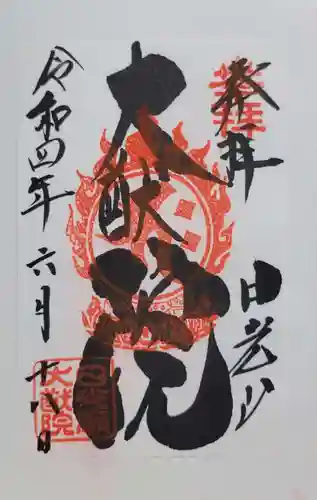 奉拝
日光山
大猷院
令和四年六月十八日
大猷院